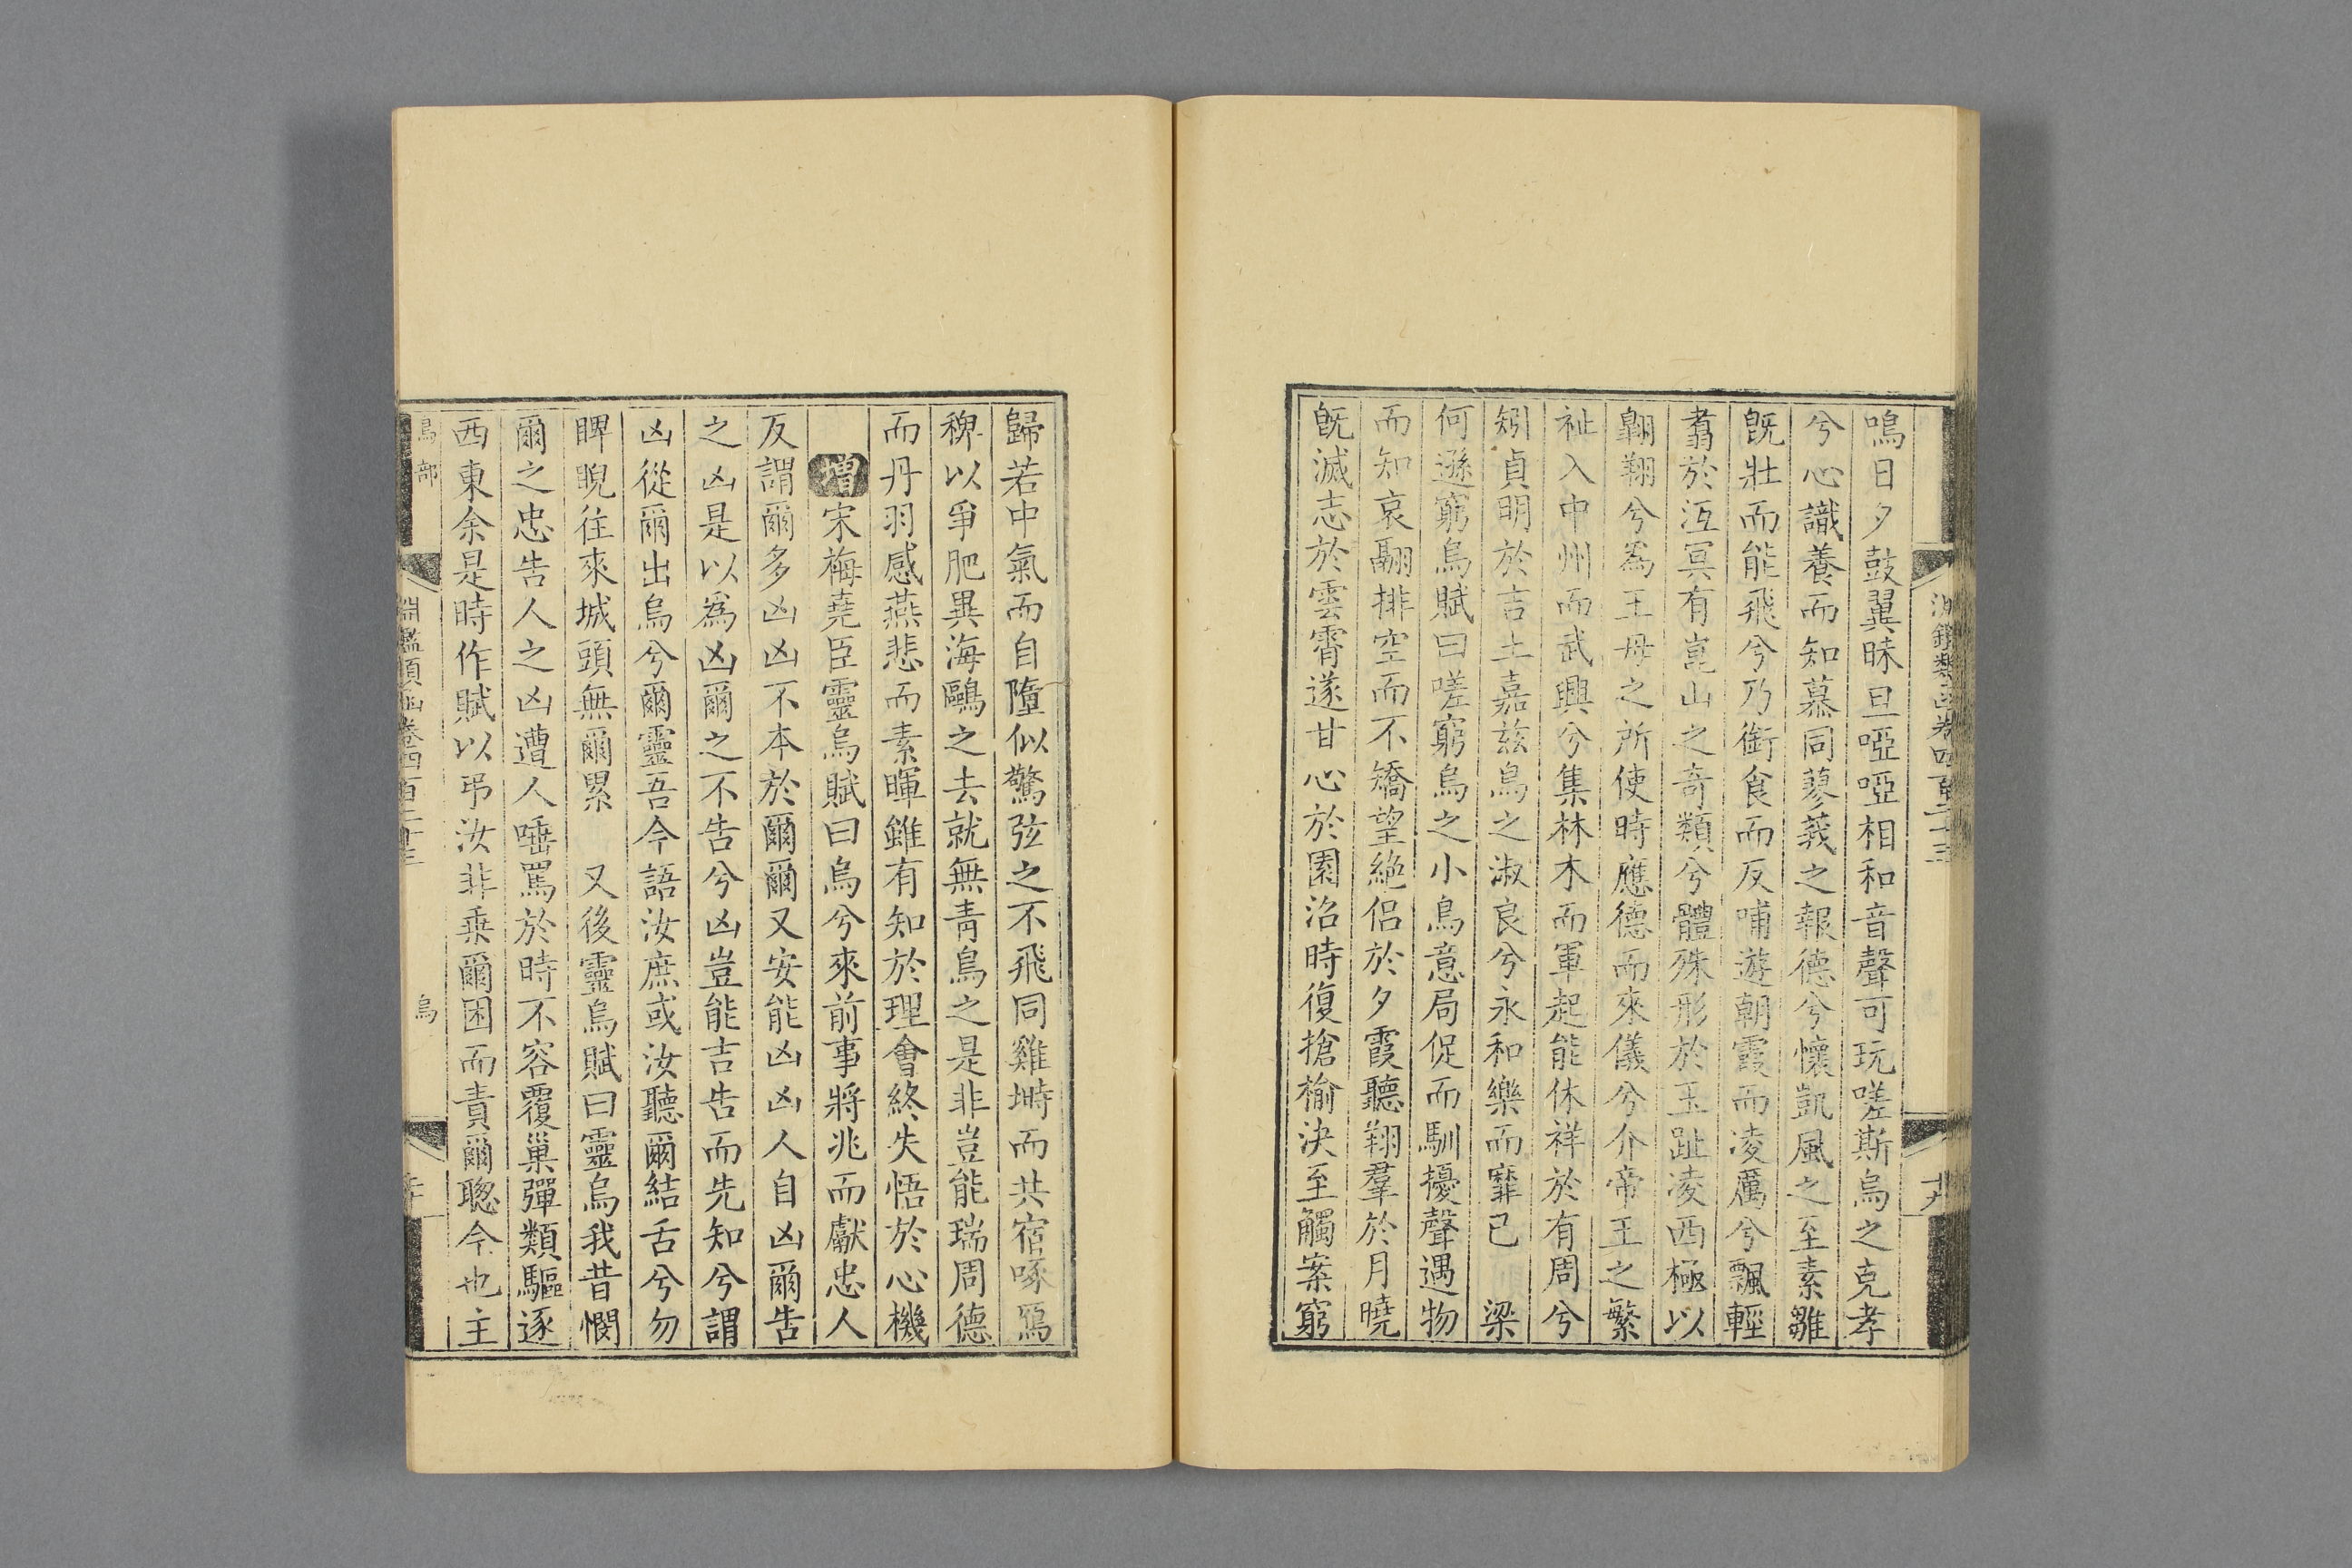 淵鑑類函卷四百二十三
十九
鳴日夕鼓翼昧旦啞啞相和音聲可玩嗟斯烏之克孝
兮心識養而知慕同蓼莪之報德兮懷凱風之至素雛
旣壯而能飛兮乃銜食而反哺遊朝霞而凌厲兮飄輕
翥於沍冥有崑山之奇類兮體殊形於玉趾凌西極以
翱翔兮為王母之所使時應德而來儀兮介帝王之繁
祉入中州而武興兮集林木而軍起能休祥於有周兮
矧貞明於吉土嘉茲烏之淑良兮永和樂而靡已 梁
何遜窮烏賦曰嗟窮烏之小鳥意局促而馴擾聲遇物
而知哀翮排空而不矯望絶侣於夕霞聽翔羣於月曉
旣滅志於雲霄遂甘心於園沼時復搶榆決至觸案窮
歸若中氣而自墮似驚弦之不飛同雞塒而共宿啄鴈
稗以爭肥異海鷗之去就無靑鳥之是非豈能瑞周德
而丹羽感燕悲而素暉雖有知於理會終失悟於心機
增宋梅堯臣靈烏賦曰烏兮來前事將兆而獻忠人
反謂爾多凶凶不本於爾爾又安能凶凶人自凶爾告
之凶是以爲凶爾之不告兮凶豈能吉告而先知兮謂
凶從爾出烏兮爾靈吾今語汝庶或汝聽爾結舌兮勿
睥睨往來城頭無爾累 又後靈烏賦曰靈烏我昔憫
爾之忠告人之凶遭人唾罵於時不容覆巢彈類驅逐
西東余是時作賦以弔汝非乗爾困而責爾聦今也主
鳥部
淵鑑類函卷四百二十三
烏